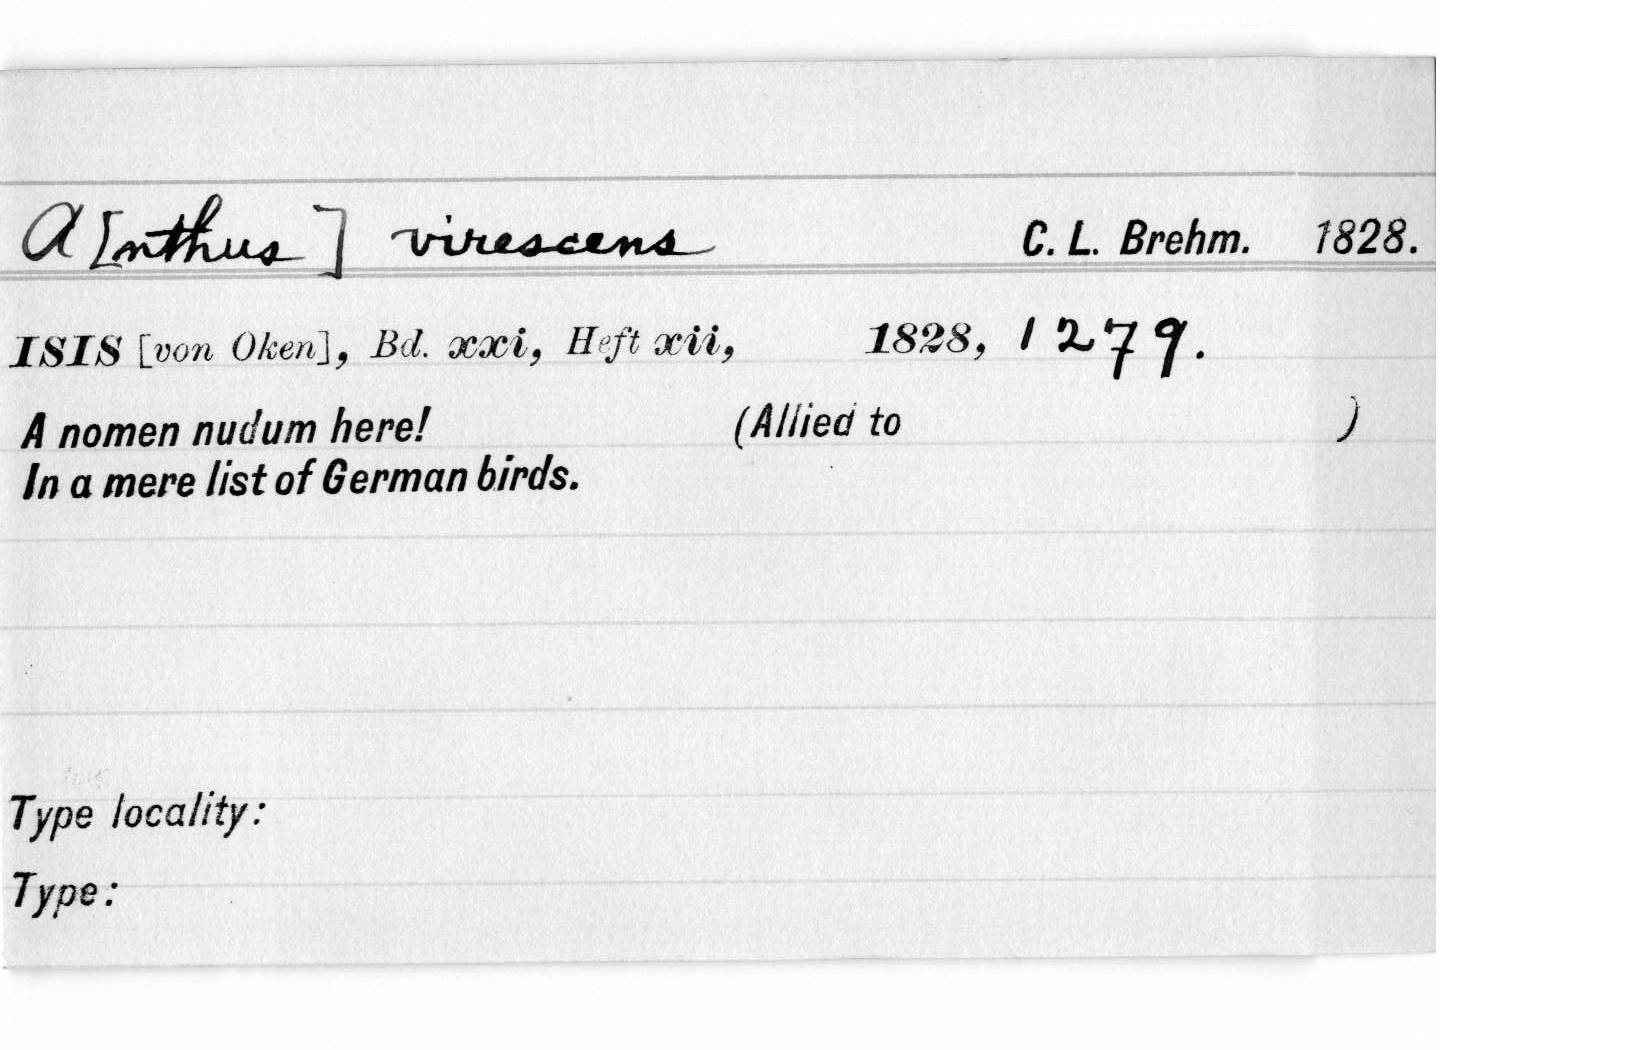 A[nthus] virescens C. L. Brehm. 1828.
ISIS [von Oken], Bd. xxi, Heft xii, 1828, 1279.
A nomen nudum here! (Allied to )
In a mere list of German birds.
Type locality:
Type: